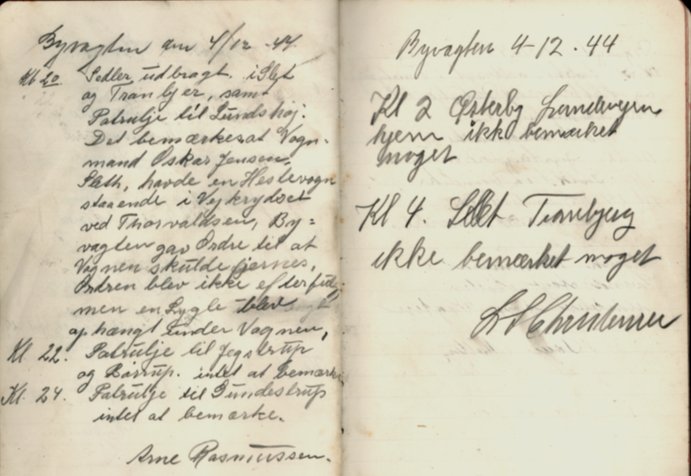 Byvagten den 4/12-44
Kl 20 Sedler udbragt i Slet
og Tranbjer, samt
Patrulje til Lundshøj.
Det bemærkes at Vogn-
mand Oskar Jensen,
Sleth, havde en Hestevogn
staaende i Vejkrydset
ved Thorvaldsen, By=
vagten gav Ordre til at
Vognen skulde fjernes,
Ordren blev ikke efterfulgt
men en Lygte blev
ophængt under Vognen,
Kl 22. Patrulje til Jegstrup
og Borrup. intet at bemærke
Kl. 24. Patrulje til
intet at bemærke.
Arne Rasmussen.
Byvagten 4-12.44
Kl 2 Østerby Landevejen
hjem ikke bemærket
noget
Kl 4. Slet Tranbjerg
ikke bemærket noget
Christensen